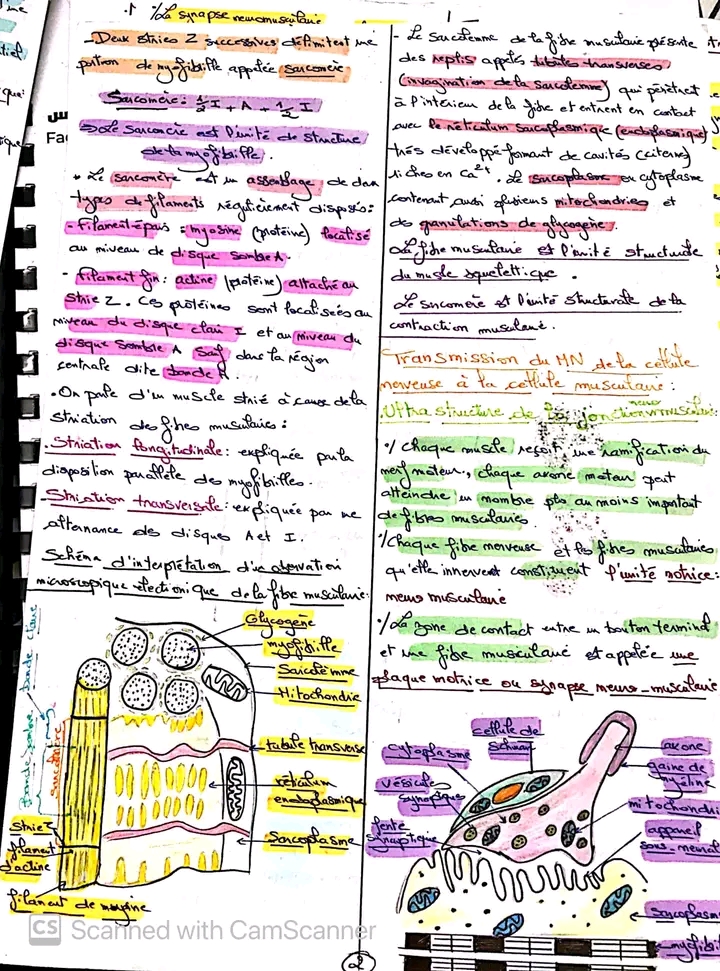 1. % La synapse neuromusculaire
- Deux stries Z successives délimitent une
portion de myofibrille appelée sarcomère
Sarcomère : ½ I + A + ½ I
⇒ Le sarcomère est l'unité de structure
de la myofibrille.
* Le sarcomère est un assemblage de deux
types de filaments régulièrement disposés :
- Filament épais : myosine (protéine) localisé
au niveau de disque sombre A.
- Filament fin : actine (protéine) attaché au
strie Z. Ces protéines sont localisées au
niveau du disque clair I et au niveau du
disque sombre A sauf dans la région
centrale dite bande H.
• On parle d'un muscle strié à cause de la
striation des fibres musculaires :
- Striation longitudinale : expliquée par la
disposition parallèle des myofibrilles.
- Striation transversale : expliquée par une
alternance des disques A et I.
Schéma d'interprétation d'une observation
microscopique électronique de la fibre musculaire :
Glycogène
myofibrille
Sarcolemme
Mitochondrie
tubule transverse
réticulum
endoplasmique
Sarcoplasme
bande claire
bande sombre
Sarcomère
Strie Z
filament
d'actine
filament de myosine
- Le sarcolemme de la fibre musculaire présente
des replis appelés tubules transverses
(invagination de la sarcolemme) qui pénètrent
à l'intérieur de la fibre et entrent en contact
avec le réticulum sarcoplasmique (endoplasmique)
très développé formant de cavités (citerne)
riches en Ca²⁺. Le sarcoplasme ou cytoplasme
contenant aussi plusieurs mitochondries et
des granulations de glycogène.
La fibre musculaire est l'unité structurale
du muscle squelettique.
Le sarcomère est l'unité structurale de la
contraction musculaire.
Transmission du MN de la cellule
nerveuse à la cellule musculaire :
Ultrastructure de la jonction neuromusculaire
•/ Chaque muscle reçoit une ramification du
nerf moteur, chaque axone moteur peut
atteindre un nombre plus ou moins important
de fibres musculaires.
•/ Chaque fibre nerveuse et les fibres musculaires
qu'elle innervent constituent l'unité motrice :
neuro musculaire
•/ La zone de contact entre un bouton terminal
et une fibre musculaire est appelée une
plaque motrice ou synapse neuro-musculaire
cellule de
Schwann
cytoplasme
vésicule
synaptique
fente
synaptique
axone
gaine de
myéline
mitochondri
appareil
sous-neural
Sarcoplasm
myofibril
CS Scanned with CamScanner
2